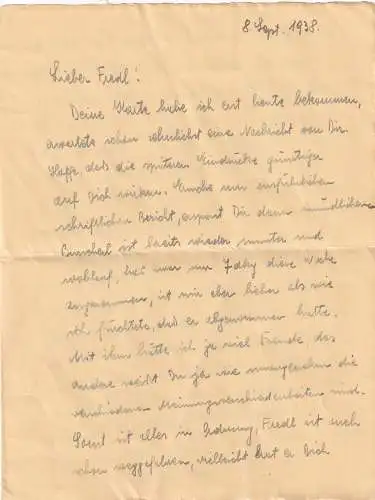 8 Sept. 1938.
Lieber Fredl!
Deine Karte habe ich erst heute bekommen,
erwartete schon sehnlichst eine Nachricht von Dir.
Hoffe, daß die späteren Eindrücke günstiger
auf Dich wirken. Mache nun ausführlichen
schriftlichen Bericht, erspart Dir dann mündlichen.
ist bereits wieder munter und
wohlauf, hat nur im diese Woche
angenommen, ist mir aber lieber als wie
ich fürchtete, daß er abgenommen hätte.
Mit ihm hätte ich ja viel Freude das
andere weißt Du ja wie unangenehm die
verschiedenen Meinungsverschiedenheiten sind.
Sonst ist alles in Ordnung, Fredl ist auch
schon weggefahren, vielleicht hat er Dich